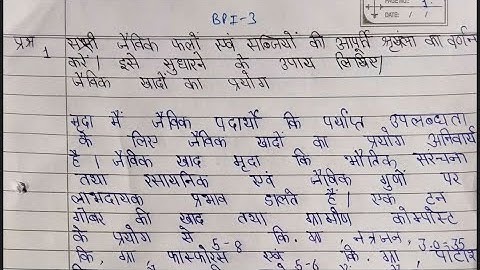 BPI-3
PAGE NO.:
DATE: / /
प्रश्न सभी जैविक फलों एवं सब्जियों की आपूर्ति श्रृंखला का वर्णन
1 करें। इसे सुधारने के उपाय लिखिए।
जैविक खादों का प्रयोग
मृदा में जैविक पदार्थो कि पर्याप्त उपलब्धता
के लिए जैविक खादों का प्रयोग अनिवार्य
है। जैविक खाद मृदा कि भौतिक सरचना
तथा रसायनिक एवं जैविक गुणों पर
लाभदायक प्रभाव डालते हैं। एक टन
गोबर की खाद तथा ग्रामीण कॉम्पोस्ट
के प्रयोग से 5-8 कि. ग्रा. नत्रजन, 3.0-35
कि. ग्रा. फास्फोरस एवं कि. ग्रा. पोटाश
5-6